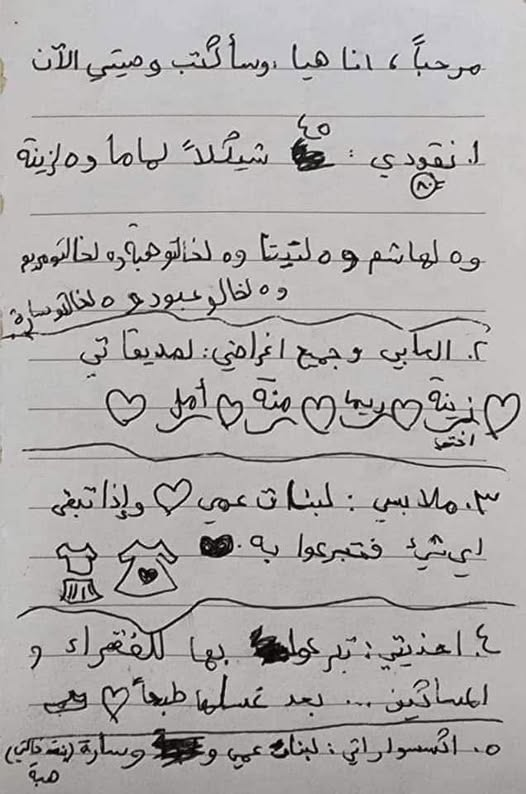 مرحباً ، انا هيا ، وسأكتب وصيتي الآن
٤٥
١. نقودي : شيكلاً لماما و ٥ لزينة
٨٠
و ٥ لهاشم و ٥ لتيتا و ٥ لخالتو هبة و ٥ لخالتو مريم
و ٥ لخالو عبود و ٥ لخالتو سارة
٢. العابي و جميع اغراضي : لصديقاتي
زينة ريما منة أمل
اختي
٣. ملابسي : لبنات عمي وإذا تبقى
اي شيء فتبرعوا به .
٤. احذيتي : تبرعوا بها للفقراء و
المساكين ... بعد غسلها طبعاً
٥. اكسسواراتي : لبنات عمي و وسارة (بنت خالتي)
هبة